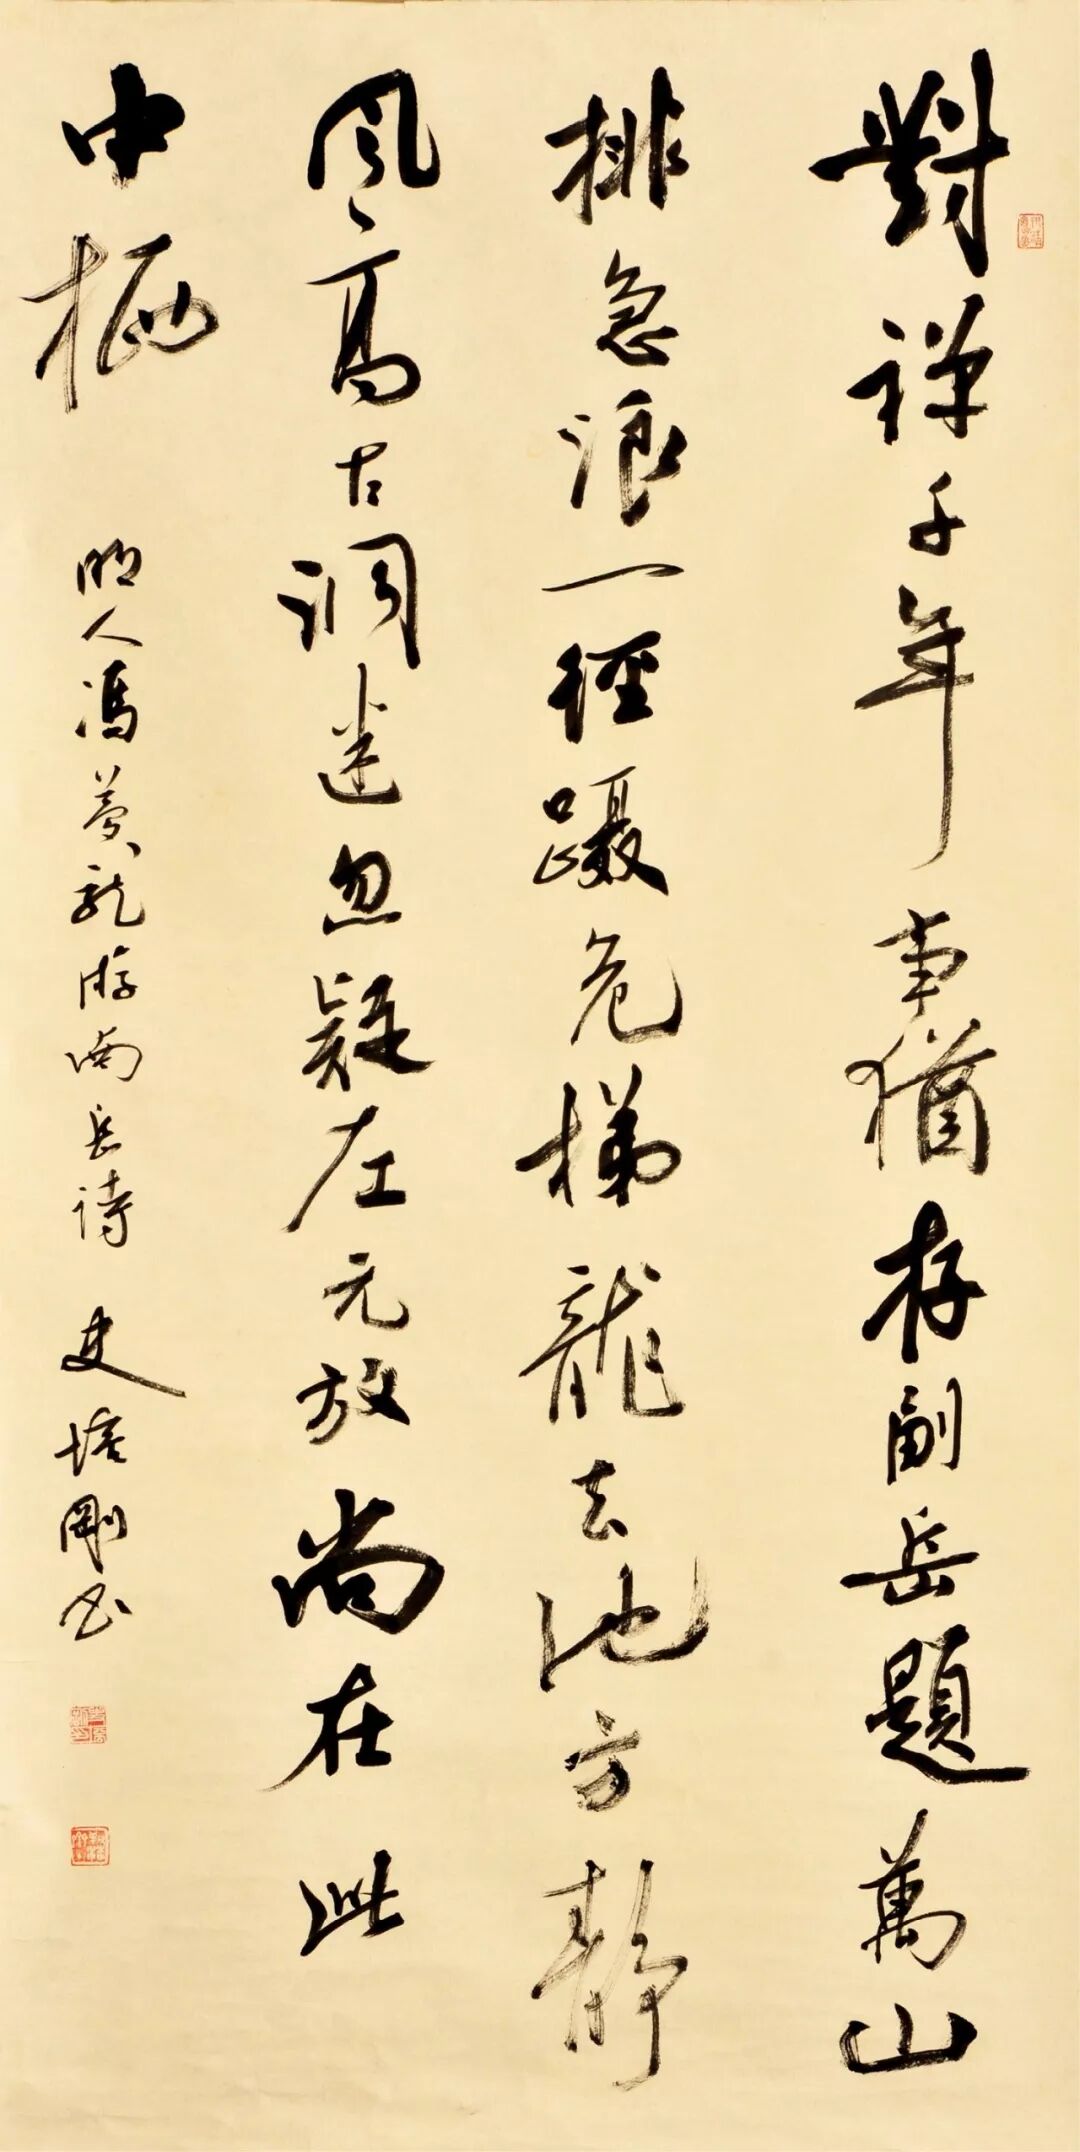 對禅千年事猶存副岳題萬山
排急浪一徑蹑危梯龍去池方静
風高古洞迷忽疑左元放尚在此
中栖
明人馮夢龍游南岳詩 史培剛書